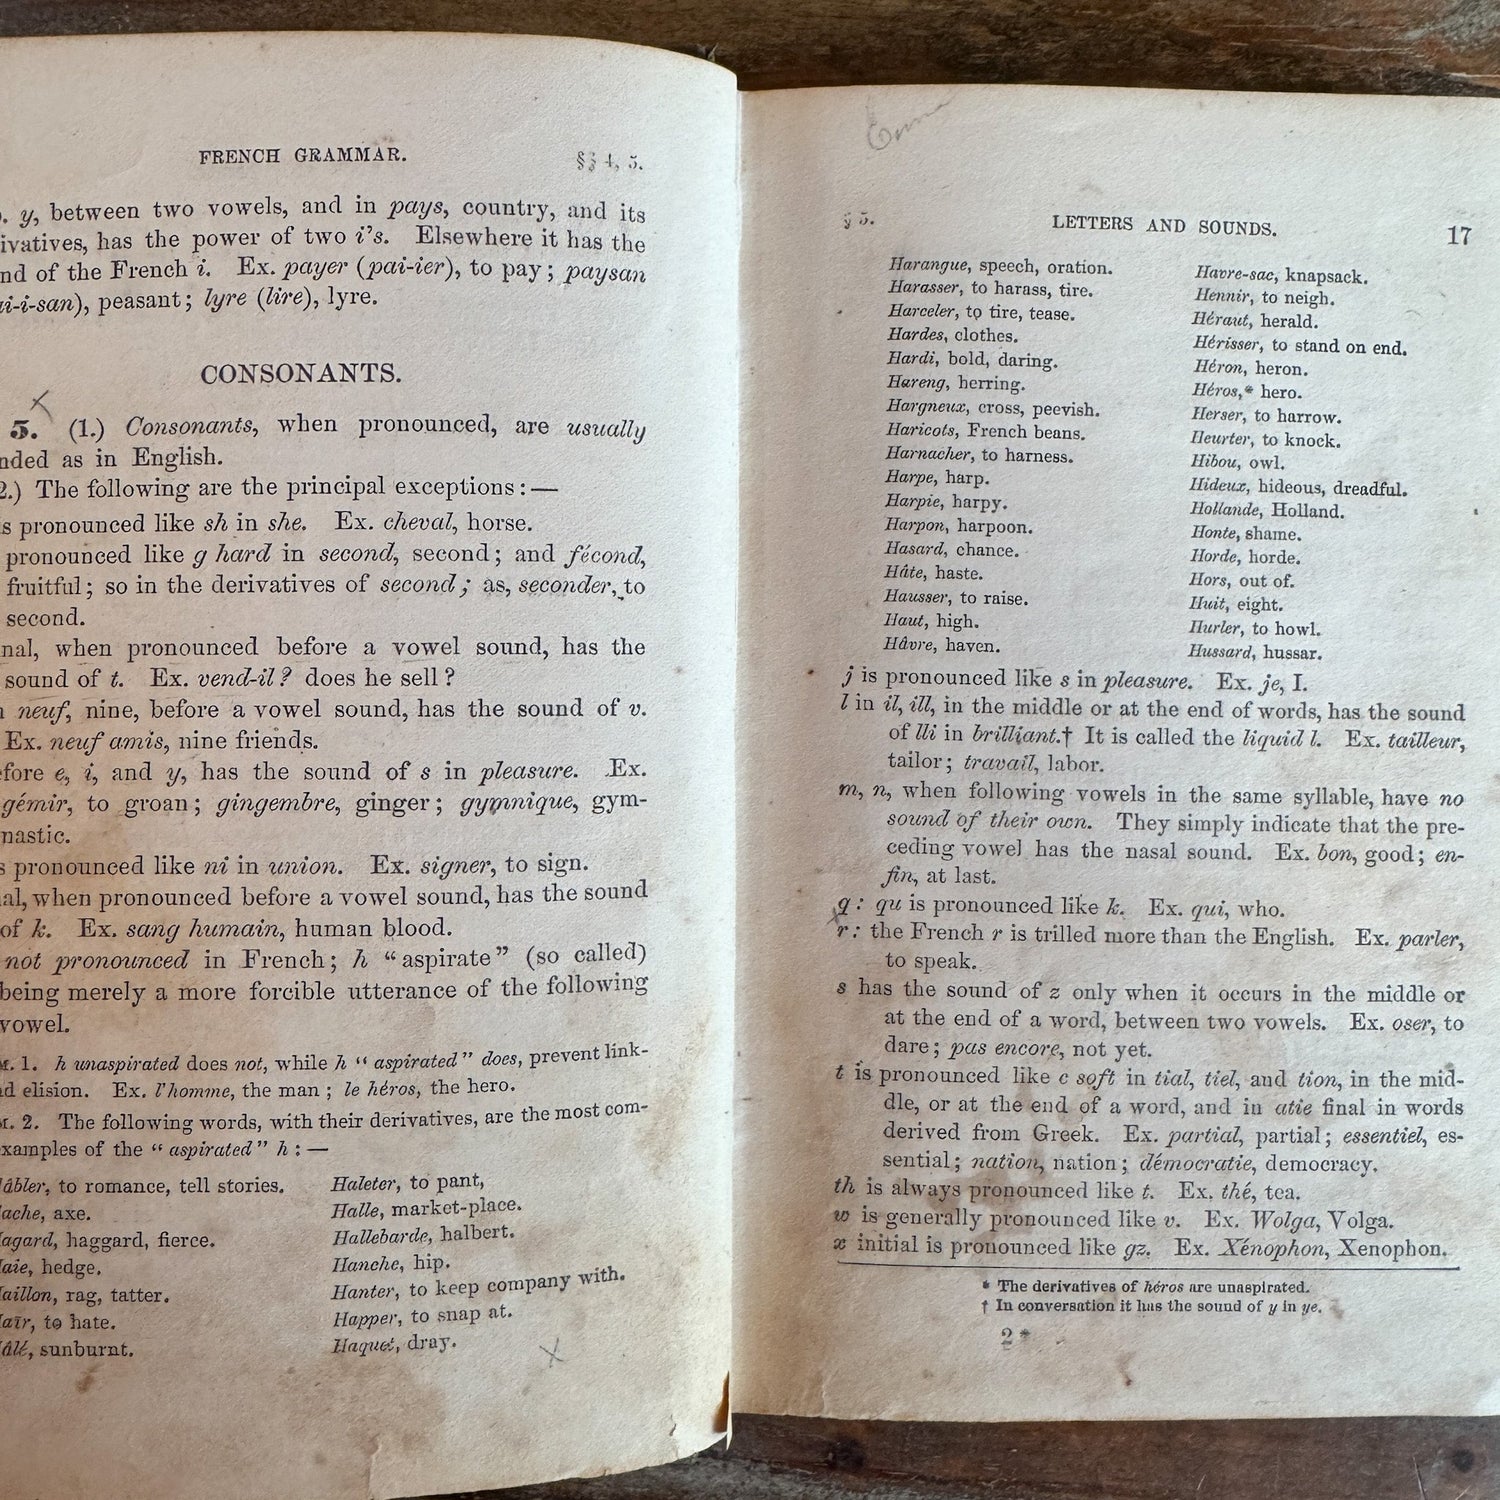 FRENCH GRAMMAR. §§ 4, 5.
y, between two vowels, and in pays, country, and its
ivatives, has the power of two i's. Elsewhere it has the
nd of the French i. Ex. payer (pai-ier), to pay; paysan
ai-i-san), peasant; lyre (lire), lyre.
CONSONANTS.
5. (1.) Consonants, when pronounced, are usually
nded as in English.
2.) The following are the principal exceptions:—
s pronounced like sh in she. Ex. cheval, horse.
pronounced like g hard in second, second; and fécond,
fruitful; so in the derivatives of second; as, seconder, to
second.
nal, when pronounced before a vowel sound, has the
sound of t. Ex. vend-il? does he sell?
n neuf, nine, before a vowel sound, has the sound of v.
Ex. neuf amis, nine friends.
fore e, i, and y, has the sound of s in pleasure. Ex.
gémir, to groan; gingembre, ginger; gymnique, gym-
nastic.
s pronounced like ni in union. Ex. signer, to sign.
al, when pronounced before a vowel sound, has the sound
of k. Ex. sang humain, human blood.
not pronounced in French; h "aspirate" (so called)
being merely a more forcible utterance of the following
vowel.
M. 1. h unaspirated does not, while h "aspirated" does, prevent link-
nd elision. Ex. l'homme, the man; le héros, the hero.
M. 2. The following words, with their derivatives, are the most com-
examples of the "aspirated" h:—
âbler, to romance, tell stories.
ache, axe.
agard, haggard, fierce.
aie, hedge.
aillon, rag, tatter.
aïr, to hate.
âlé, sunburnt.
Haleter, to pant,
Halle, market-place.
Hallebarde, halbert.
Hanche, hip.
Hanter, to keep company with.
Happer, to snap at.
Haquet, dray.
X
Emma
§ 5. LETTERS AND SOUNDS. 17
Harangue, speech, oration.
Harasser, to harass, tire.
Harceler, to tire, tease.
Hardes, clothes.
Hardi, bold, daring.
Hareng, herring.
Hargneux, cross, peevish.
Haricots, French beans.
Harnacher, to harness.
Harpe, harp.
Harpie, harpy.
Harpon, harpoon.
Hasard, chance.
Hâte, haste.
Hausser, to raise.
Haut, high.
Hâvre, haven.
Havre-sac, knapsack.
Hennir, to neigh.
Héraut, herald.
Hérisser, to stand on end.
Héron, heron.
Héros,* hero.
Herser, to harrow.
Heurter, to knock.
Hibou, owl.
Hideux, hideous, dreadful.
Hollande, Holland.
Honte, shame.
Horde, horde.
Hors, out of.
Huit, eight.
Hurler, to howl.
Hussard, hussar.
j is pronounced like s in pleasure. Ex. je, I.
l in il, ill, in the middle or at the end of words, has the sound
of lli in brilliant.† It is called the liquid l. Ex. tailleur,
tailor; travail, labor.
m, n, when following vowels in the same syllable, have no
sound of their own. They simply indicate that the pre-
ceding vowel has the nasal sound. Ex. bon, good; en-
fin, at last.
q: qu is pronounced like k. Ex. qui, who.
r: the French r is trilled more than the English. Ex. parler,
to speak.
s has the sound of z only when it occurs in the middle or
at the end of a word, between two vowels. Ex. oser, to
dare; pas encore, not yet.
t is pronounced like c soft in tial, tiel, and tion, in the mid-
dle, or at the end of a word, and in atie final in words
derived from Greek. Ex. partial, partial; essentiel, es-
sential; nation, nation; démocratie, democracy.
th is always pronounced like t. Ex. thé, tea.
w is generally pronounced like v. Ex. Wolga, Volga.
x initial is pronounced like gz. Ex. Xénophon, Xenophon.
* The derivatives of héros are unaspirated.
† In conversation it has the sound of y in ye.
2*